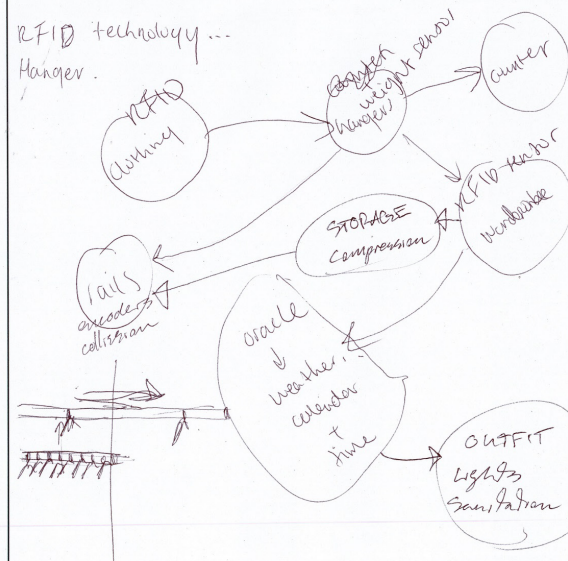 RFID technology...
Hanger.
RFID
clothing
counter
weight sensor
hangers
counter
RFID sensor
wardrobe
STORAGE
compression
rails
encoders
collission
oracle
weather...
calendar
+
time
OUTFIT
Lights
Sanitation